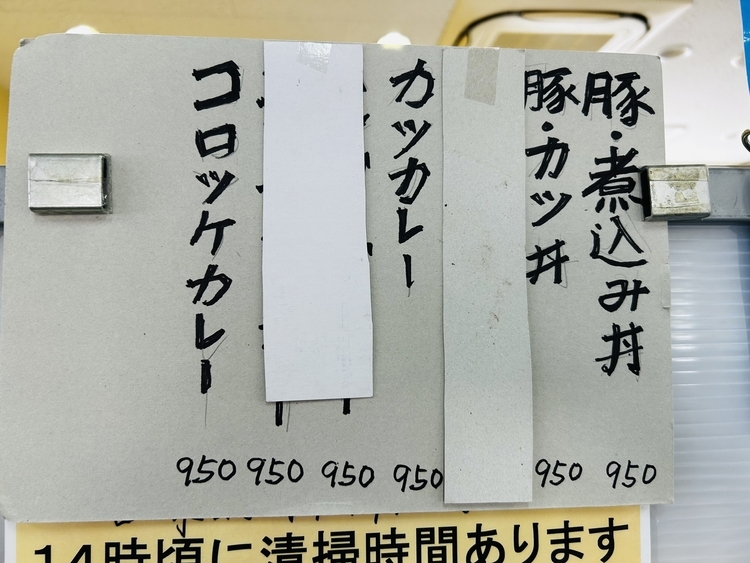 豚・煮込み丼 950
豚・カツ丼 950
カツカレー 950
950
950
コロッケカレー 950
14時頃に清掃時間あります